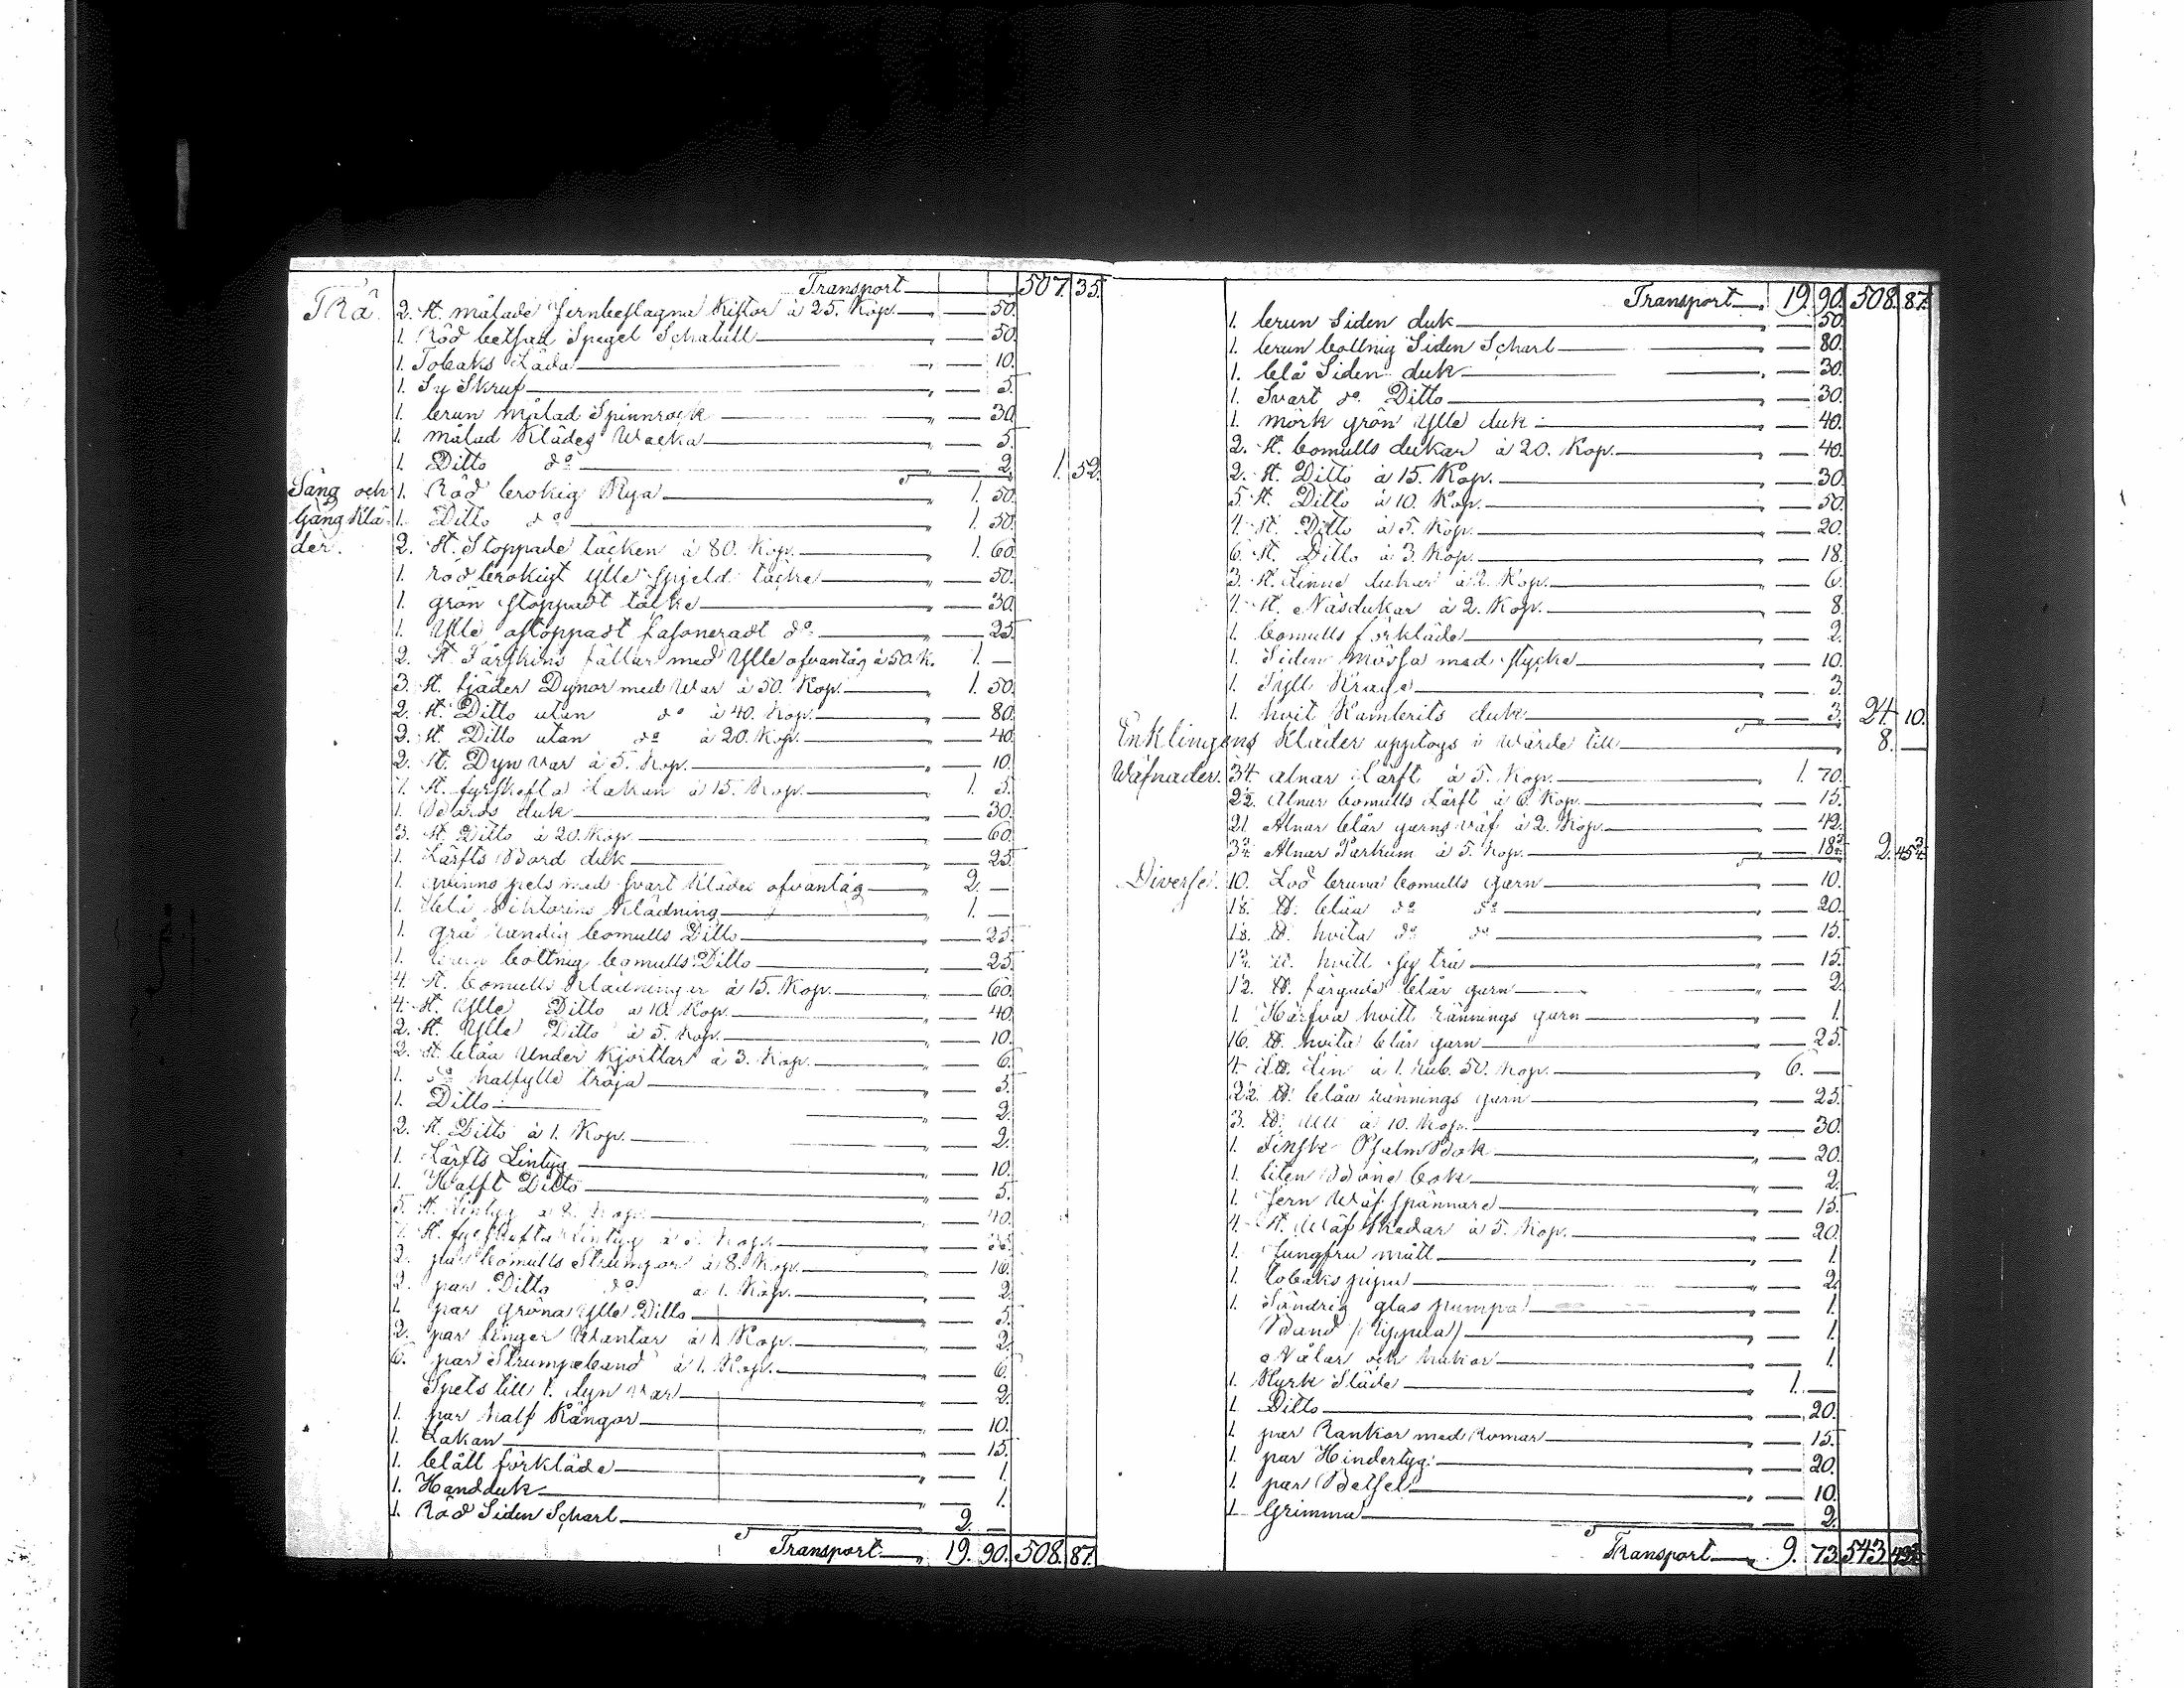 Transport 507. 35.
Trä. 2. st. målade Jernbeslagna Kistor à 25. Kop. " — 50.
1. Röd betsad Spegel Schatull " — 50.
1. Tobaks Låda " — 10.
1. Sy Skruf " — 5.
1. brun målad Spinnrock " — 30.
1. målad Klädes Wacka " — 5.
1. Ditto do " — 2. 1. 52.
Säng och 1. Röd brokig Rya " 1. 50.
Gång Klä- 1. Ditto do " 1. 50.
der. 2. st. Stoppade täcken à 80. Kop. " 1. 60.
1. röd brokigt Ylle Spjeld täcke " — 50.
1. grön stoppadt täcke " — 30.
1. Ylle ostoppadt fasoneradt do " — 25.
2. st. Fårskins fällar med Ylle ofvantåg à 50. K. 1. —
3. st. fjäder Dynor med War à 50. Kop. " 1. 50.
2. st. Ditto utan do à 40. Kop. " — 80.
2. st. Ditto utan do à 20. Kop. " — 40.
2. st. Dyn var à 5. Kop. " — 10.
7. st. fyrskefta Lakan à 15. Kop. " 1. 5.
1. Bords duk " — 30.
3. st. Ditto à 20. Kop. " — 60.
1. Lärfts Bord duk " — 25.
1. qvinns pels med svart Klädes ofvantåg " 2. —
1. Klädning " 1. —
1. grå randig bomulls Ditto " — 25.
1. brun bottnig bomulls Ditto " — 25.
4. st. bomulls Klädningar à 15. Kop. " — 60.
4. st. Ylle Ditto à 10. Kop. " — 40.
2. st. Ylle Ditto à 5. Kop. " — 10.
2. st. blåa Under Kjortlar à 3. Kop. " — 6.
1. do halfylle tröja " — 3.
1. Ditto " — 2.
2. st. Ditto à 1. Kop. " — 2.
1. Lärfts Lintyg " — 10.
1. Halft Ditto " — 5.
5. st. Lintyg à 8. Kop. " — 40.
7. st. fyrskefta Lintyg à 5. Kop. " — 35.
2. par bomulls Strumpor à 8. Kop. " — 16.
2. par Ditto do à 1. Kop. " — 2.
1. par gröna Ylle Ditto " — 5.
2. par finger Wantar à 1. Kop. " — 2.
6. par Strumpeband à 1. Kop. " — 6.
Spets till 1. dyn var " — 2.
1. par half Kängor " — 10.
1. Lakan " — 15.
1. blått förkläde " — 1.
1. Handduk " — 1.
1. Röd Siden Scharl 2. —
Transport " 19. 90. 508. 87.
Transport " 19. 90. 508. 87.
1. brun Siden duk " — 50.
1. brun bottnig Siden Scharl " — 80.
1. blå Siden duk " — 30.
1. Svart do Ditto " — 30.
1. mörk grön Ylle duk " — 40.
2. st. bomulls dukar à 20. Kop. " — 40.
2. st. Ditto à 15. Kop. " — 30.
5. st. Ditto à 10. Kop. " — 50.
4. st. Ditto à 5. Kop. " — 20.
6. st. Ditto à 3. Kop. " — 18.
3. st. Linne dukar à 2. Kop. " — 6.
4. st. Näsdukar à 2. Kop. " — 8.
1. bomulls förkläde " — 2.
1. Siden Mössa med stycke " — 10.
1. Tyll Krage " — 3.
1. hvit Kambrits duk " — 3. 24. 10.
Enklingens Kläder upptogs i Wärde till 8. —
Wäfnader. 34. alnar Lärft à 5. Kop. " 1. 70.
2½. Alnar bomulls Lärft à 6. Kop. " — 15.
21. Alnar blår garns väf à 2. Kop. " — 42.
3¾. Alnar Parkum à 5. Kop. " — 18¾ 2. 45¾
Diverse. 10. Lod bruna bomulls garn " — 10.
18. ℔. blåa do do " — 20.
18. ℔. hvita do do " — 15.
1½. ℔. hvitt sy trå " — 15.
12. ℔. färgade blår garn " — 2.
1. Härfva hvitt rännings garn " — 1.
16. ℔. hvita blår garn " — 25.
4. L℔. Lin à 1. Rub. 50. Kop. " 6. —
2½. ℔. blåa rännings garn " — 25.
3. ℔. Ull à 10. Kop. " — 30.
1. Finsk Psalm Bok " — 20.
1. liten Böne bok " — 2.
1. Jern Wäf spännare " — 15.
4. st. Wäf Skedar à 5. Kop. " — 20.
1. Jungfru mått " — 1.
1. tobaks pipa " — 2.
1. Söndrig glas pumpa " — 1.
Band " — 1.
Nålar och hakar " — 1.
1. Kyrk Släde " 1. —
1. Ditto " — 20.
1. par Rankor med Komar " — 15.
1. par Hindertyg " — 20.
1. par Betsel " — 10.
1. Grimma " — 2.
Transport " 9. 73. 543. 42¾